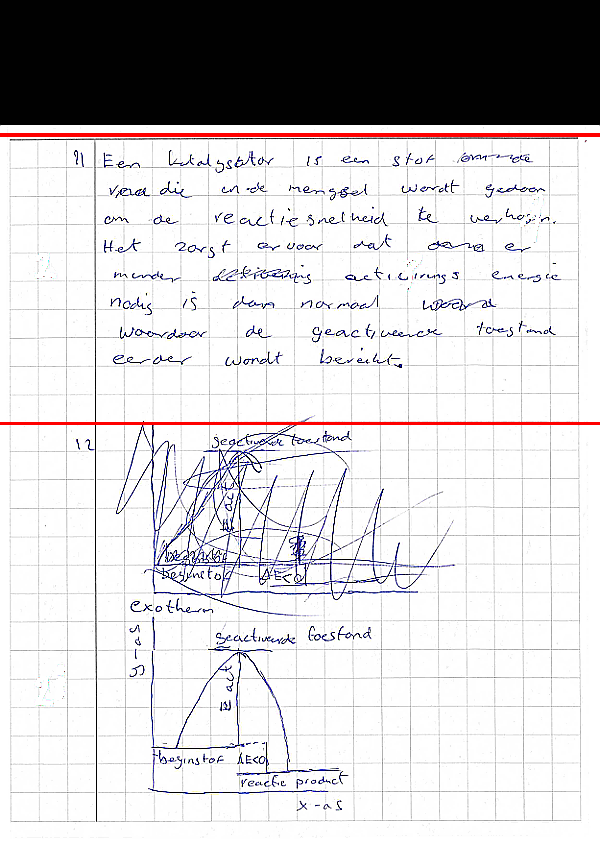 11 Een katalysator is een stof
die in de mengsel wordt gedaan
om de reactiesnelheid te verhogen.
Het zorgt ervoor dat er
minder activirings energie
nodig is dan normaal
waardoor de geactiveerde toestand
eerder wordt bereikt.
12 geactiveerde toestand
E act
beginstof ΔE<0
exotherm
y-as
geactiveerde toestand
E act
beginstof ΔE<0
reactie product
x-as